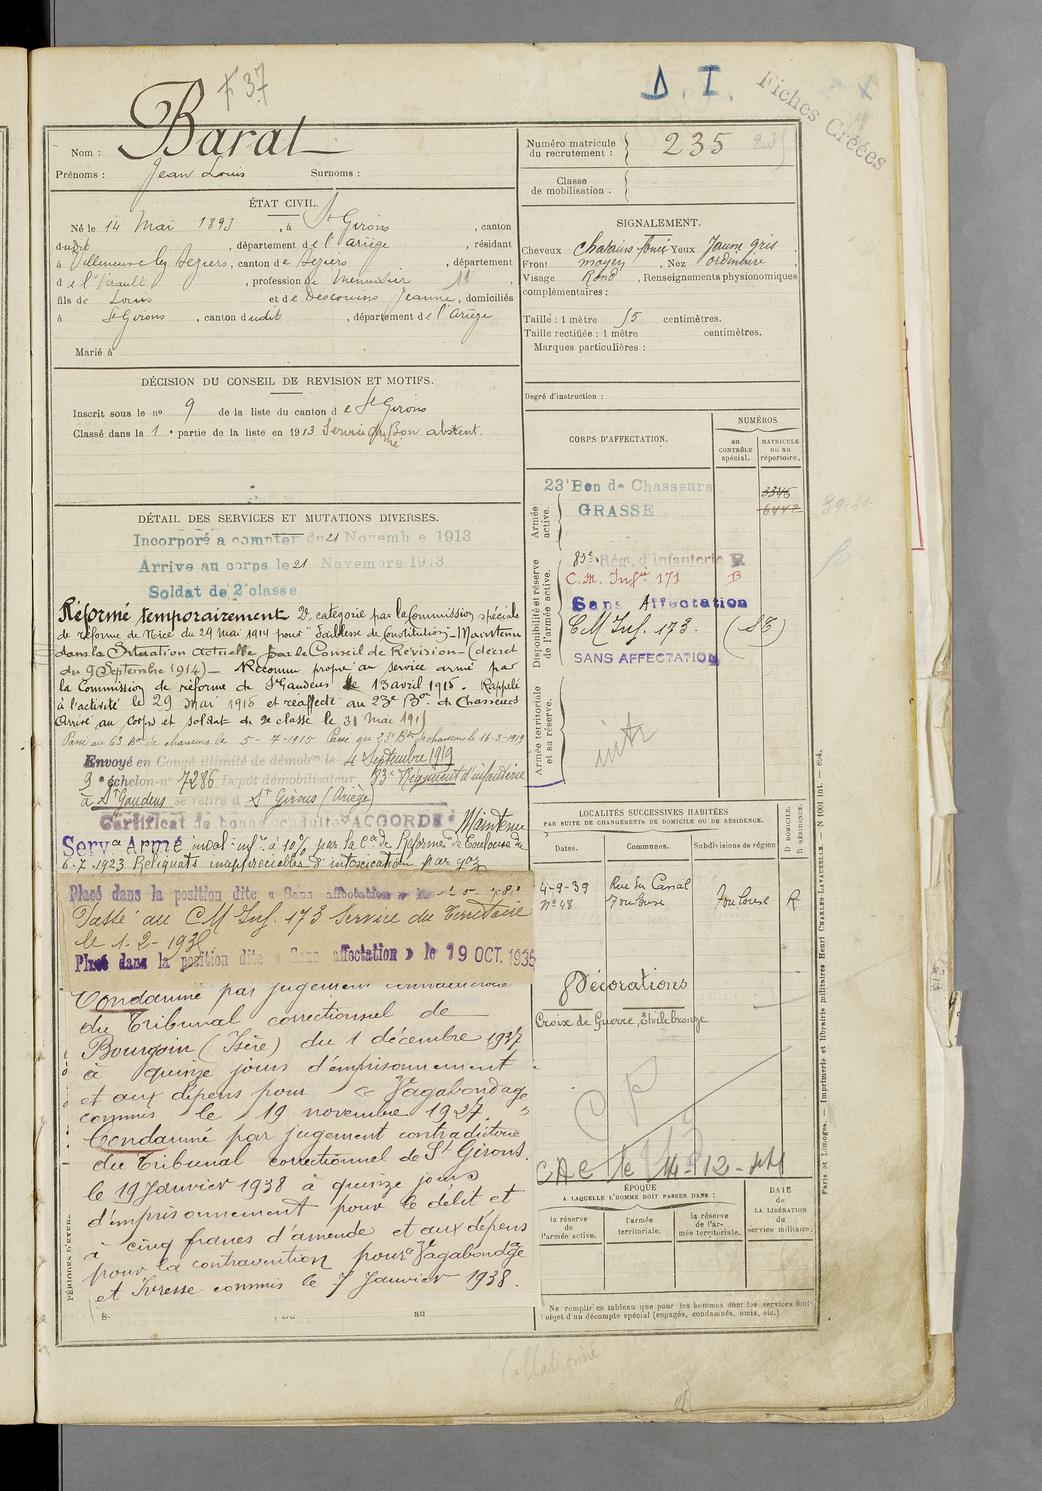 F 37
D. I.
Fiches Créées
Nom : Barat
Prénoms : Jean Louis Surnoms :
Numéro matricule du recrutement : 235
Classe de mobilisation :
ÉTAT CIVIL.
Né le 14 Mai 1893, à St Girons, canton
dudit, département de l'Ariège, résidant
à Villeneuve les Beziers, canton de Beziers, département
de l'Hérault, profession de Menuisier 11,
fils de Louis et de Descouins Jeanne, domiciliés
à St Girons, canton dudit, département de l'Ariège
Marié à
SIGNALEMENT.
Cheveux chatains foncé Yeux Jaune gris
Front moyen, Nez ordinaire,
Visage Rond, Renseignements physionomiques
complémentaires :
Taille : 1 mètre 55 centimètres.
Taille rectifiée : 1 mètre centimètres.
Marques particulières :
Degré d'instruction :
DÉCISION DU CONSEIL DE REVISION ET MOTIFS.
Inscrit sous le no 9 de la liste du canton de St Girons
Classé dans la 1e partie de la liste en 1913 Service armé Bon absent.
DÉTAIL DES SERVICES ET MUTATIONS DIVERSES.
Incorporé a compter du 21 Novembre 1913
Arrive au corps le 21 Novembre 1913
Soldat de 2e classe
Réformé temporairement 2e categorie par la Commission spéciale
de réforme de Nice du 29 mai 1914 pour "Faiblesse de Constitution" - Maintenu
dans la Situation actuelle par le Conseil de Révision - (décret
du 9 Septembre 1914) - Reconnu propre au service armé par
la Commission de réforme de St Gaudens le 13 avril 1915. Rappelé
à l'activité le 29 mai 1915 et réaffecté au 23e Bon de Chasseurs
Arrivé au corps et soldat de 2e classe le 31 mai 1915
Passé au 63 Bon de chasseurs le 5-7-1915 Passé au 23e Bon de chasseurs le 16-3-1919
Envoyé en Congé illimité de démobon le 4 Septembre 1919
9e échelon no 7286 Dépôt démobilisateur 83e Régiment d'infanterie
à St Gaudens se retire à St Girons (Ariège)
Certificat de bonne conduite "ACCORDÉ" Maintenu
Serv ce Armé inval. infre à 10% par la Con de Réforme de Toulouse du
6-7-1923 Reliquats inappréciables d'intoxication par gaz
Placé dans la position dite « Sans affectation »
Passé au CM Inf. 173 Service du Territoire
le 1-2-193
Placé dans la position dite « Sans affectation » le 19 OCT. 1935
Condamné par jugement contradictoire
du Tribunal correctionnel de
Bourgoin (Isère) du 1 décembre 1927
à quinze jours d'emprisonnement
et aux dépens pour « Vagabondage
commis le 19 novembre 1927. »
Condamné par jugement contradictoire
du Tribunal correctionnel de St Girons.
le 19 Janvier 1938 à quinze jours
d'emprisonnement pour le délit et
à cinq francs d'amende et aux dépens
pour la contravention pour "Vagabondage
et Ivresse commis le 7 Janvier 1938.
PÉRIODES D'EXER-
au
CORPS D'AFFECTATION.
NUMÉROS
au CONTRÔLE spécial.
MATRICULE ou au répertoire.
Armée active.
23e Bon de Chasseurs
GRASSE
3346
6442
Disponibilité et réserve de l'armée active.
83e Régt. d'Infanterie R
C.M. Infrie 171 B
Sans Affectation
CM Inf. 173. (ST)
SANS AFFECTATION
Armée territoriale et sa réserve.
39-40
LOCALITÉS SUCCESSIVES HABITÉES
PAR SUITE DE CHANGEMENTS DE DOMICILE OU DE RÉSIDENCE.
D DOMICILE.
R RÉSIDENCE.
Dates. Communes. Subdivisions de région
4-9-39 Rue du Canal
No 48 Toulouse Toulouse R
Décorations
Croix de Guerre, Etoile bronze
CAC le 14-12-44
ÉPOQUE
A LAQUELLE L'HOMME DOIT PASSER DANS :
la réserve de l'armée active.
l'armée territoriale.
la réserve de l'armée territoriale.
DATE de LA LIBÉRATION du service militaire.
Ne remplir ce tableau que pour les hommes dont les services font
l'objet d'un décompte spécial (engagés, condamnés, omis, etc.)
Paris et Limoges. — Imprimerie et librairie militaires Henri CHARLES-LAVAUZELLE. — N 1001 int. — 894.